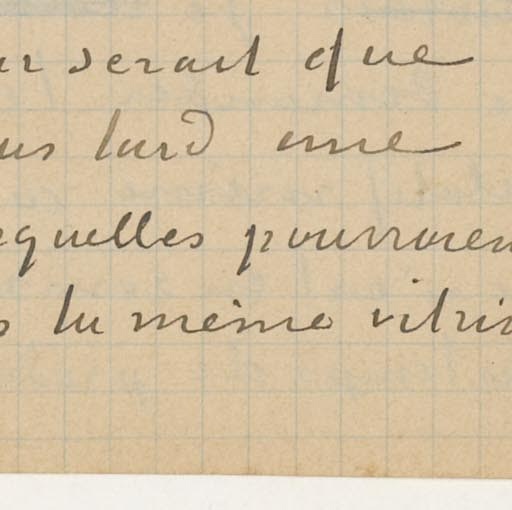 ur serait que
us tard une
equelles pourraien
s la même vitri